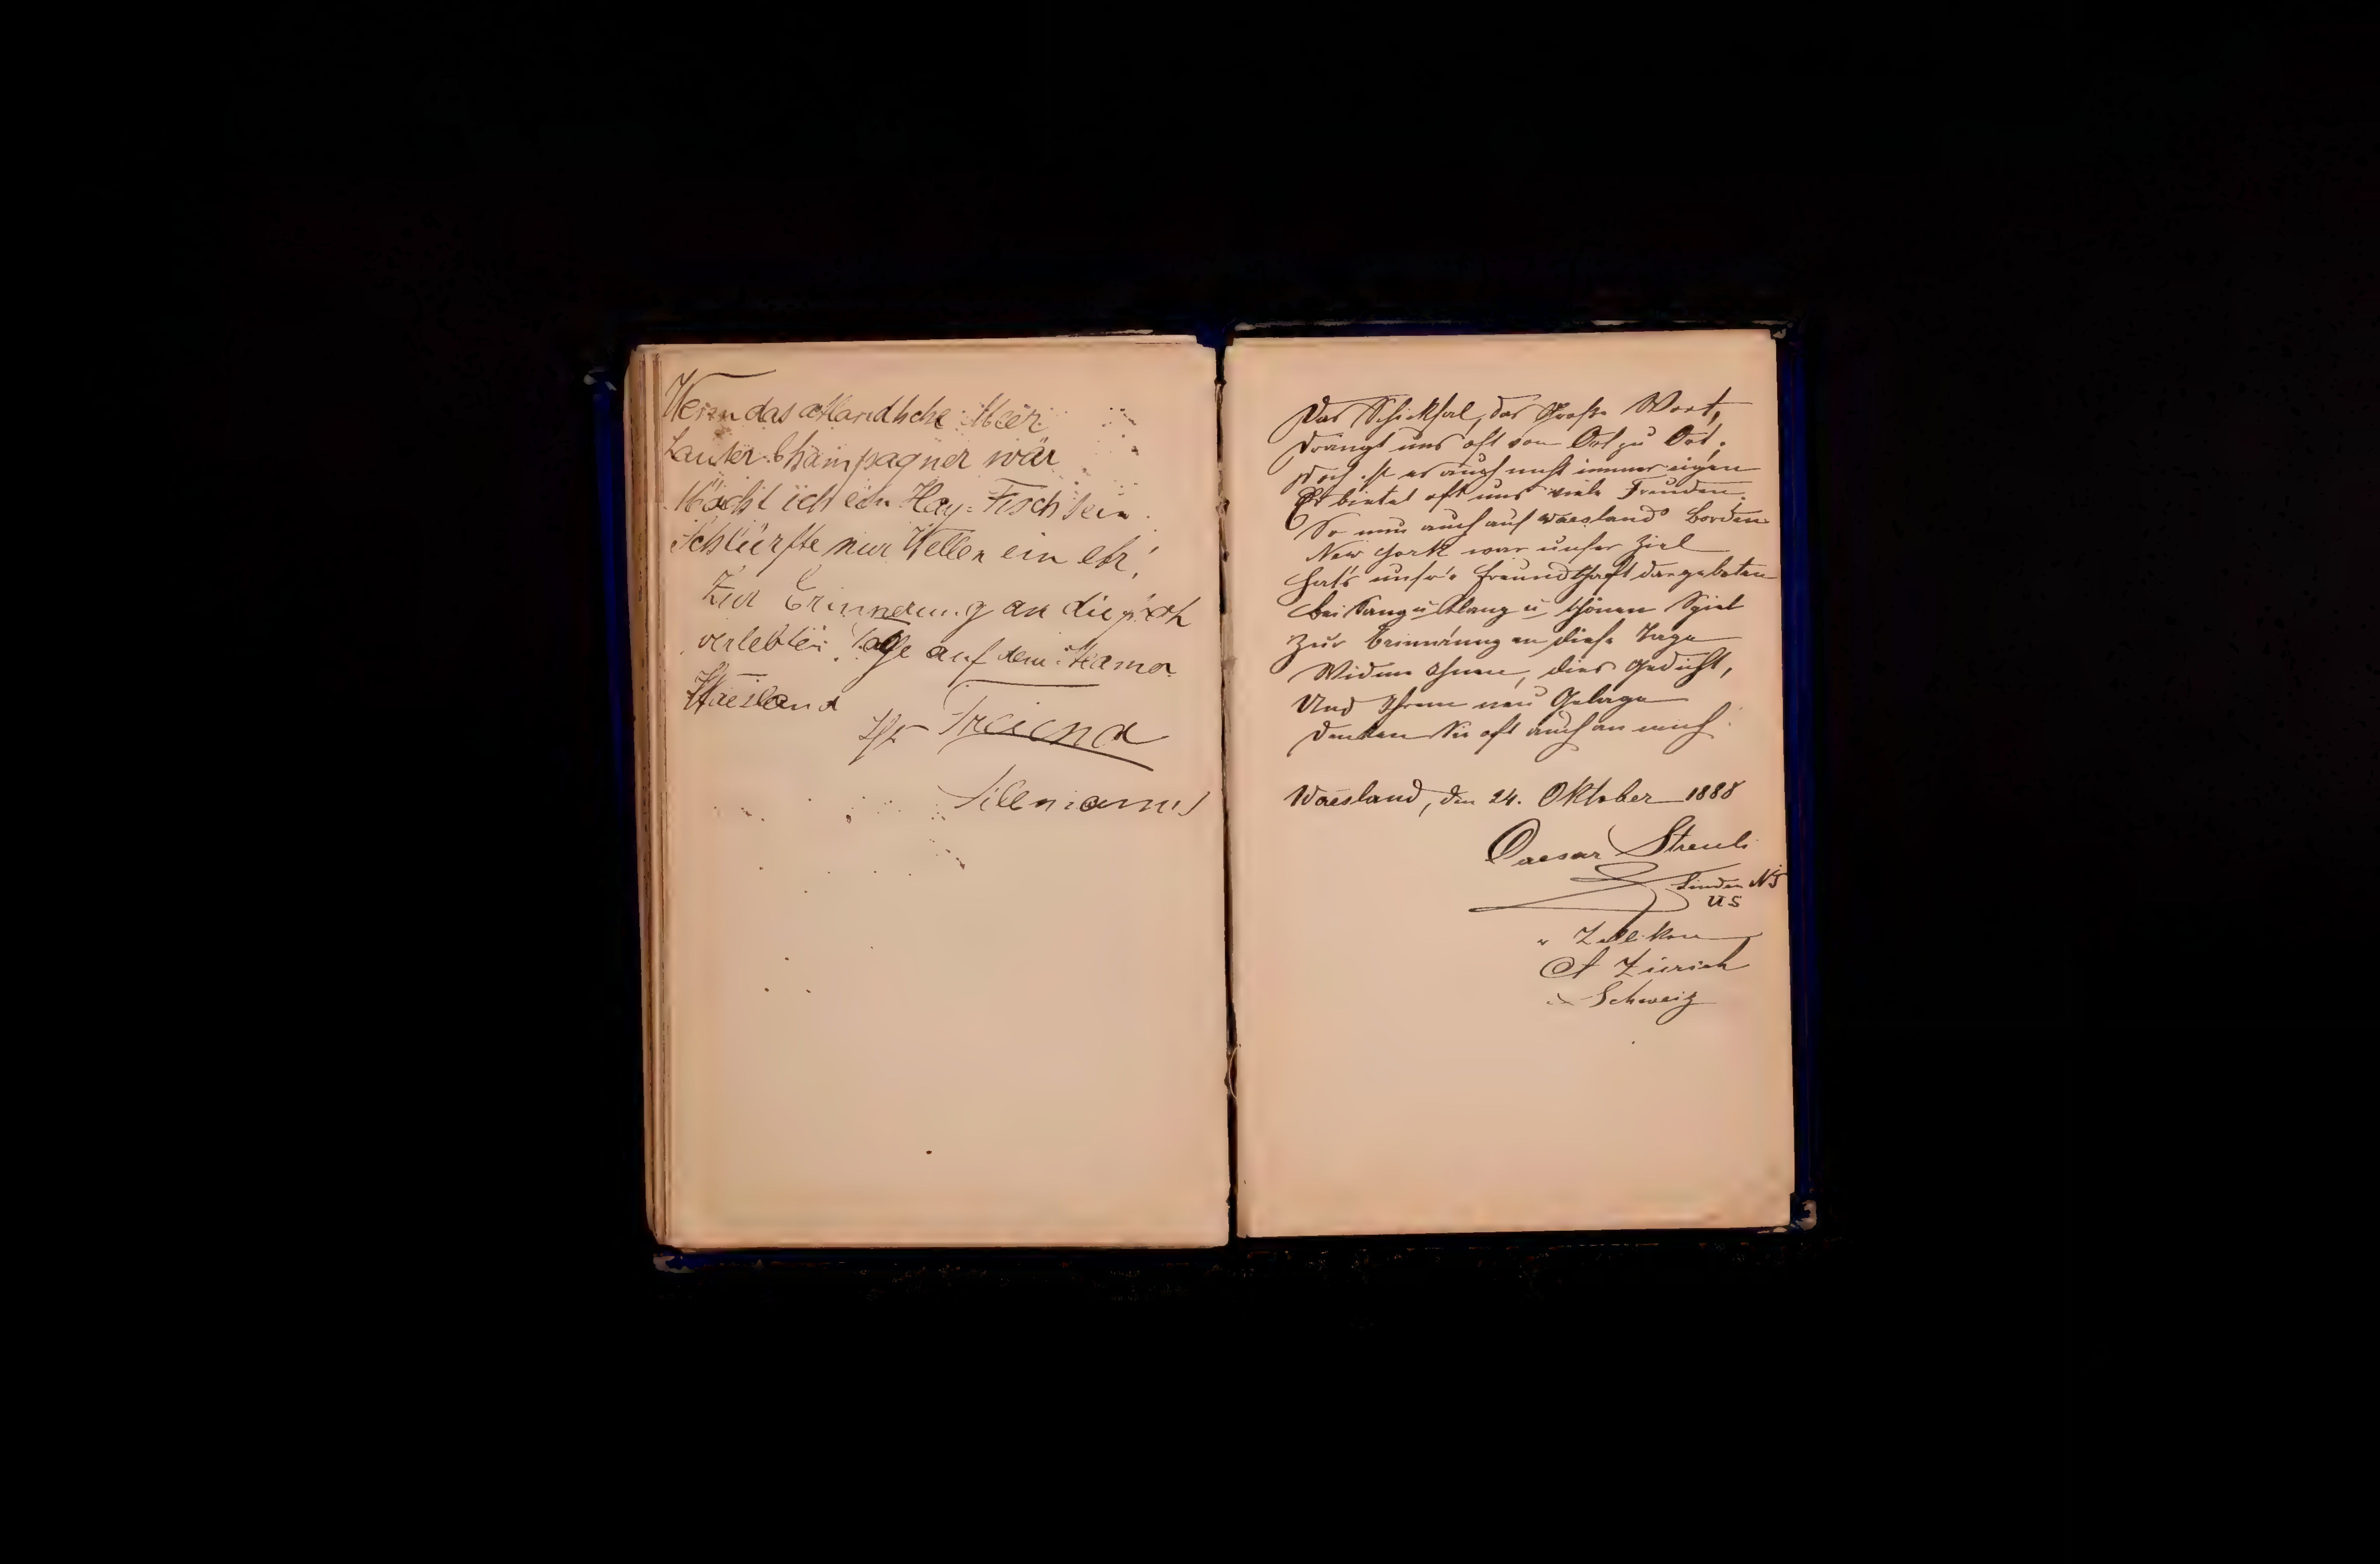 Wenn das atlandische Meer
Lauter Champagner wär
Möcht ich ein Hay-Fisch sein
Schlürfte nur Wellen ein etz!
Zur Erinnerung an die froh
verlebten Tage auf dem
Waesland
Ihr Freund
Das Schicksal, das große Wort,
Drängt uns oft von Ort zu Ort,
Doch ist es auch nicht immer eigen
Es bietet oft uns viele Freuden.
So nun auch auf Waeslands Borden
New York war unser Ziel
Hat's unsre Freundschaft dargeboten
Bei Sang u Klang u schönen Spiel
Zur Erinnerung an diese Tage
Widme Ihnen, dies Gedicht,
Und Ihrem neu Gelage
Denken Sie oft auch an mich.
Waesland, den 24. Oktober 1888
Caesar Streuli
Linden NJ
US
Zollikon
Ct Zürich
Schweiz